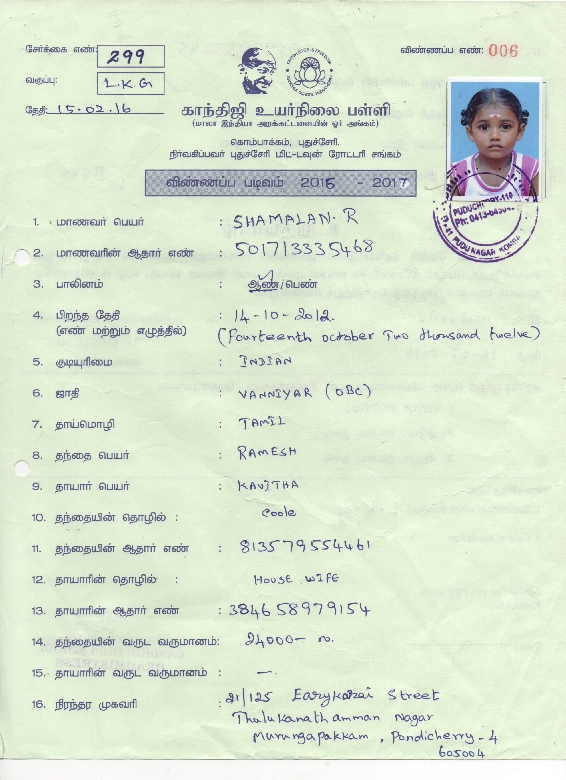 சேர்க்கை எண்: 299
விண்ணப்ப எண்: 006
வகுப்பு: L.K.G
தேதி: 15.02.16
காந்திஜி உயர்நிலை பள்ளி
(மாலா இந்தியா அறக்கட்டளையின் ஓர் அங்கம்)
கொம்பாக்கம், புதுச்சேரி.
நிர்வகிப்பவர் புதுச்சேரி மிட்-டவுன் ரோட்டரி சங்கம்
விண்ணப்ப படிவம் 2016 - 2017
1. மாணவர் பெயர் : SHAMALAN. R
2. மாணவரின் ஆதார் எண் : 501713335468
3. பாலினம் : ஆண்/பெண்
4. பிறந்த தேதி : 14-10-2012.
(எண் மற்றும் எழுத்தில்) (Fourteenth october Two thousand twelve)
5. குடியுரிமை : INDIAN
6. ஜாதி : VANNIYAR (OBC)
7. தாய்மொழி : TAMIL
8. தந்தை பெயர் : RAMESH
9. தாயார் பெயர் : KAVITHA
10. தந்தையின் தொழில் : Coole
11. தந்தையின் ஆதார் எண் : 813579554461
12. தாயாரின் தொழில் : HOUSE WIFE
13. தாயாரின் ஆதார் எண் : 384658979154
14. தந்தையின் வருட வருமானம்: 24000-
15. தாயாரின் வருட வருமானம் : -
16. நிரந்தர முகவரி : 21/125 Street
Thulukanathamman Nagar
Murungapakkam, Pondicherry-4
605004